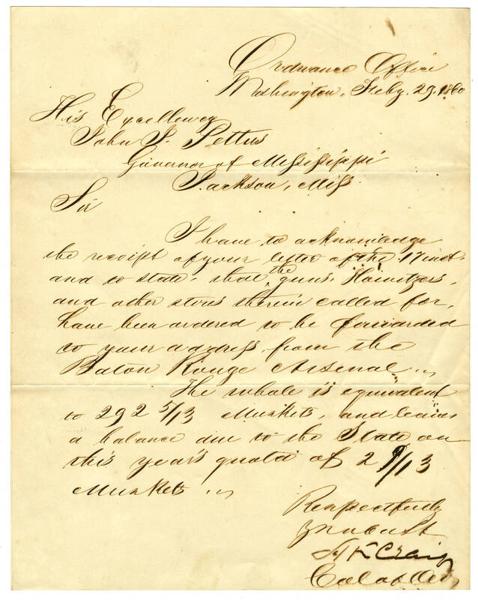 Ordnance Office
Washington, Feby. 29, 1860
His Excellency
John J. Pettus
Governor of Mississippi
Jackson, Miss.
Sir
I have to acknowledge
the receipt of your letter of the 17 inst
and to state, that the guns, Howitzers,
and other stores therein called for,
have been ordered to be forwarded
to your address from the
Baton Rouge Arsenal.
The whole is equivalent
to 292 5/13 Muskets, and leaves
a balance due to the State on
this year's quota of 2 9/13
Muskets
Respectfully
Yr ob st
H K Craig
Col of Ord